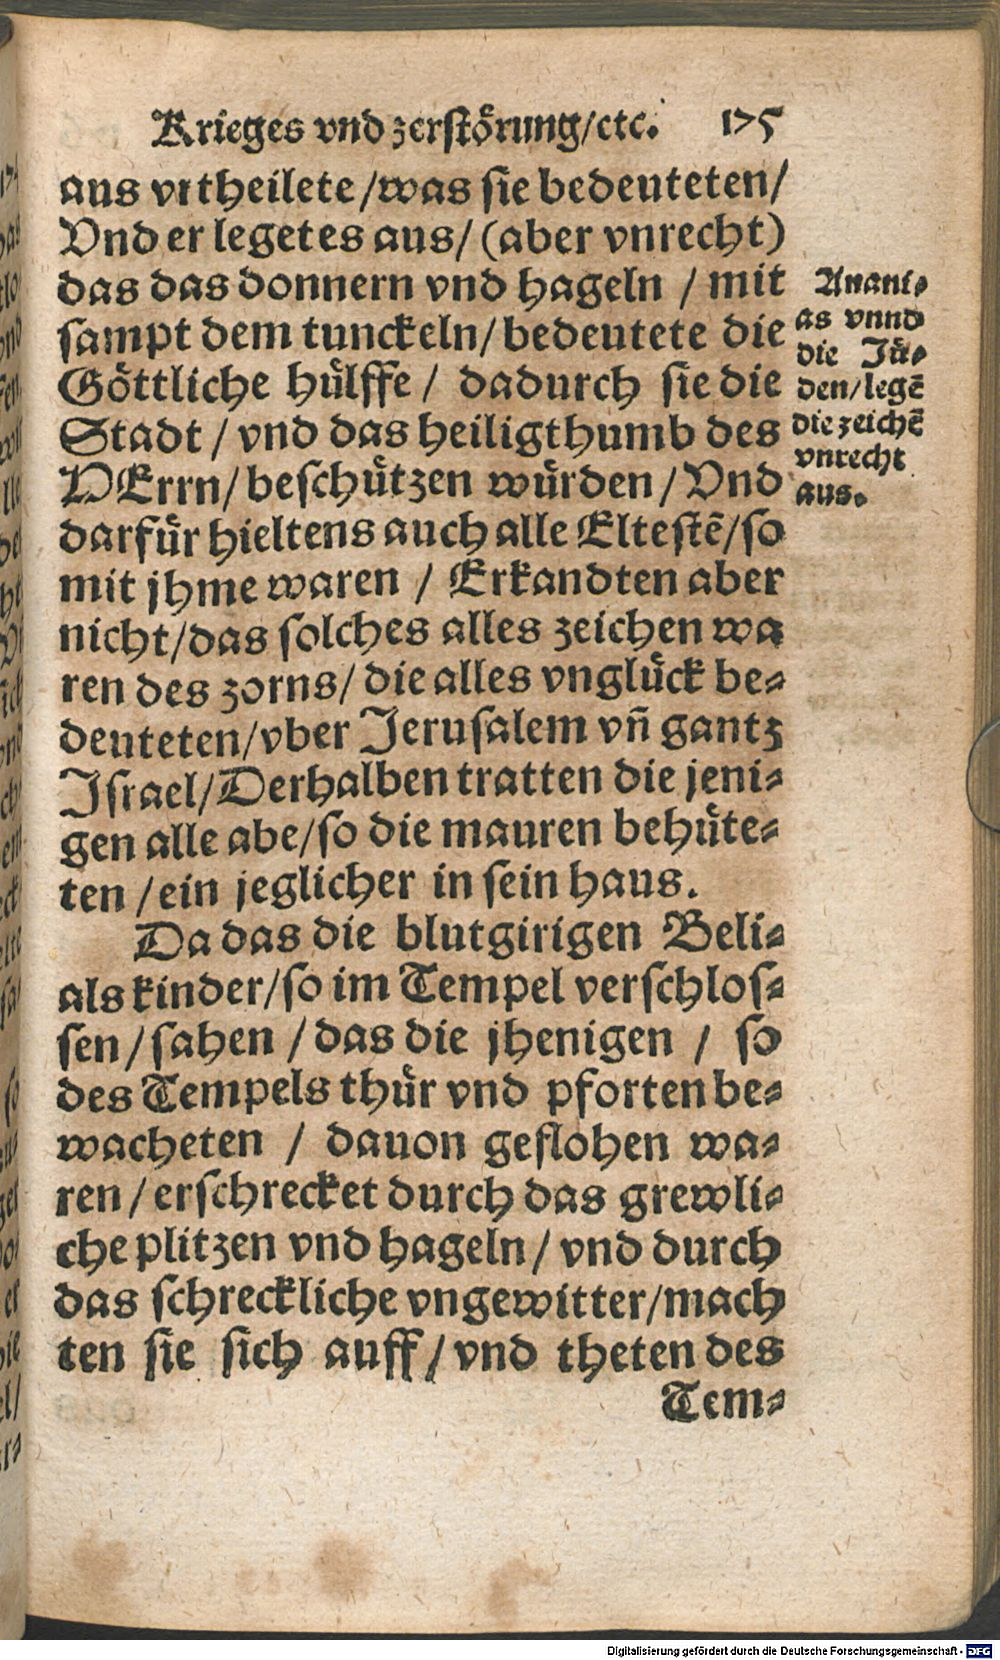 Krieges vnd zerstörung/etc. 175
aus vrtheilete/was sie bedeuteten/
Vnd er leget es aus/(aber vnrecht)
das das donnern vnd hageln / mit
sampt dem tunckeln/bedeutete die
Göttliche hülffe / dadurch sie die
Stadt / vnd das heiligthumb des
HErrn/beschützen würden/Vnd
darfür hieltens auch alle Eltestē/so
mit jhme waren / Erkandten aber
nicht/das solches alles zeichen wa
ren des zorns/die alles vnglück be-
deuteten/vber Jerusalem vn̄ gantz
Israel/Derhalben tratten die jeni-
gen alle abe/so die mauren behüte-
ten /ein jeglicher in sein haus.
Da das die blutgirigen Beli-
als kinder/so im Tempel verschlos-
sen/sahen /das die jhenigen / so
des Tempels thür vnd pforten be-
wacheten / dauon geflohen wa-
ren/erschrecket durch das grewli-
che plitzen vnd hageln/vnd durch
das schreckliche vngewitter/mach
ten sie sich auff/vnd theten des
Tem-
Anani-
as vnnd
die Jü-
den/legē
die zeichē
vnrecht
aus.
Digitalisierung gefördert durch die Deutsche Forschungsgemeinschaft - DFG